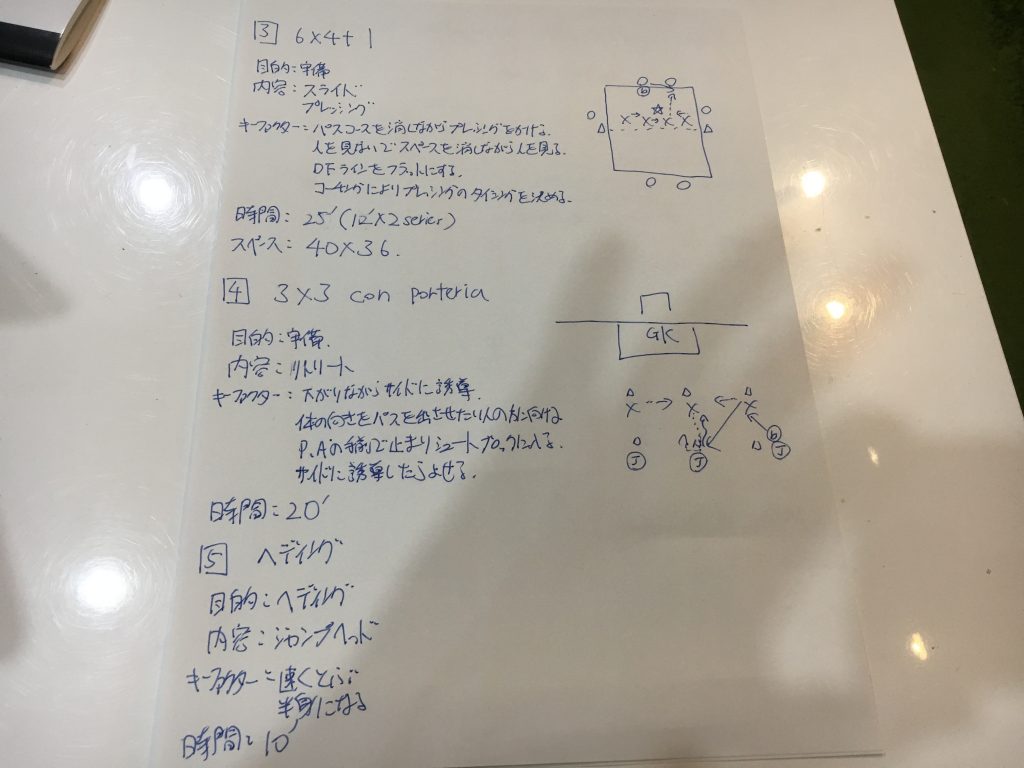 3 6×4+1
目的：守備
内容：スライド
プレッシング
キーファクター：パスコースを消しながらプレッシングをかける.
人を見ないでスペースを消しながら人を見る.
DFラインをフラットにする.
コーチングによりプレッシングのタイミングを決める.
時間：25′(12′×2 series)
スペース：40×36.
4 3×3 con porteria
GK
目的：守備.
内容：リトリート
キーファクター：下がりながらサイドに誘導.
体の向きをパスを出させたい人の方に向ける
P.Aの手前で止まりシュートブロックに入る.
サイドに誘導したらよせる.
時間：20′
5 ヘディング
目的：ヘディング
内容：ジャンプヘッド
キーファクター：速くとぶ
半身になる
時間：10′